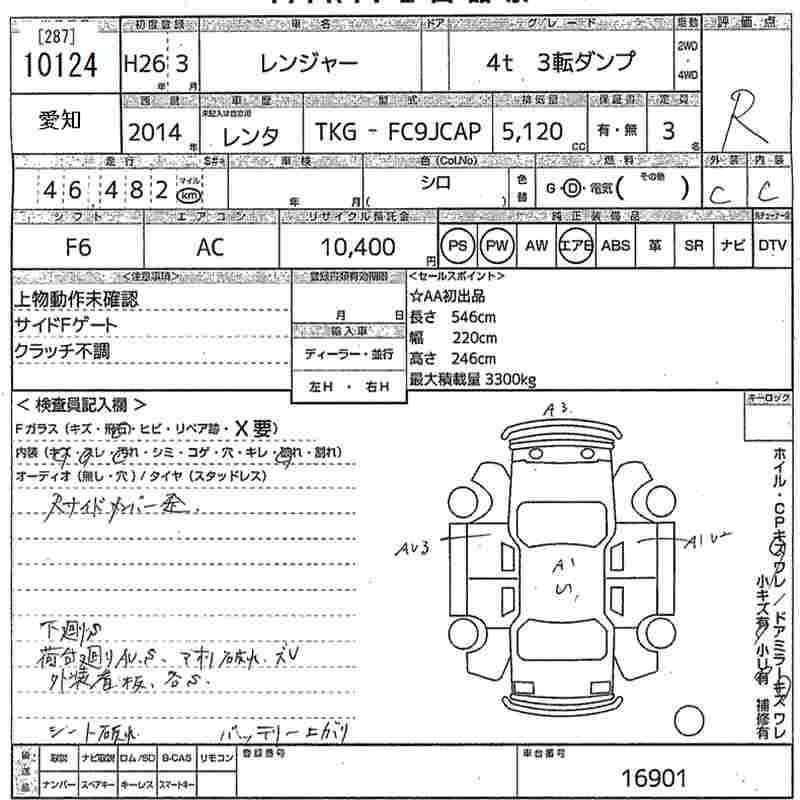 [287]
10124
愛知
初度登録
H26 年 3 月
車名
レンジャー
ドア
グレード
4t 3転ダンプ
駆動
2WD
・
4WD
評価点
R
西暦
2014 年
車歴
未記入は自家用
レンタ
型式
TKG - FC9JCAP
排気量
5,120 CC
保証書
有・無
定員
3 名
走行
46,482
マイル
km
S#
車検
年 月
色(Col.No)
シロ
( )
色替
燃料
G・D・電気( その他 )
外装
C
内装
C
シフト
F6
エアコン
AC
リサイクル預託金
10,400 円
純正装備品
PS PW AW エアB ABS 革 SR ナビ DTV
<注意事項>
上物動作未確認
サイドFゲート
クラッチ不調
登録書類有効期限
月 日
輸入車
ディーラー・並行
左H ・ 右H
<セールスポイント>
☆AA初出品
長さ 546cm
幅 220cm
高さ 246cm
最大積載量 3300kg
< 検査員記入欄 >
Fガラス(キズ・飛石・ヒビ・リペア跡・X要)
内装(キズ・スレ・汚れ・シミ・コゲ・穴・キレ・割れ)
オーディオ(無し・穴)/タイヤ(スタッドレス)
Rサイドメンバー歪
下廻りS
荷台廻りAU.S、マホリ破れ.ズU
外装看板、各S.
シート破れ バッテリー上がり
キーロック
A3.
AU3
A1
S,
A1U2
ホイル・CPキズワレ/ドアミラーキズワレ
小キズ有/小U有 補修有
後送品
取説 ナビ取説 ロム/SD B-CAS リモコン
ナンバー スペアキー キーレス スマートキー
登録番号
車台番号
16901